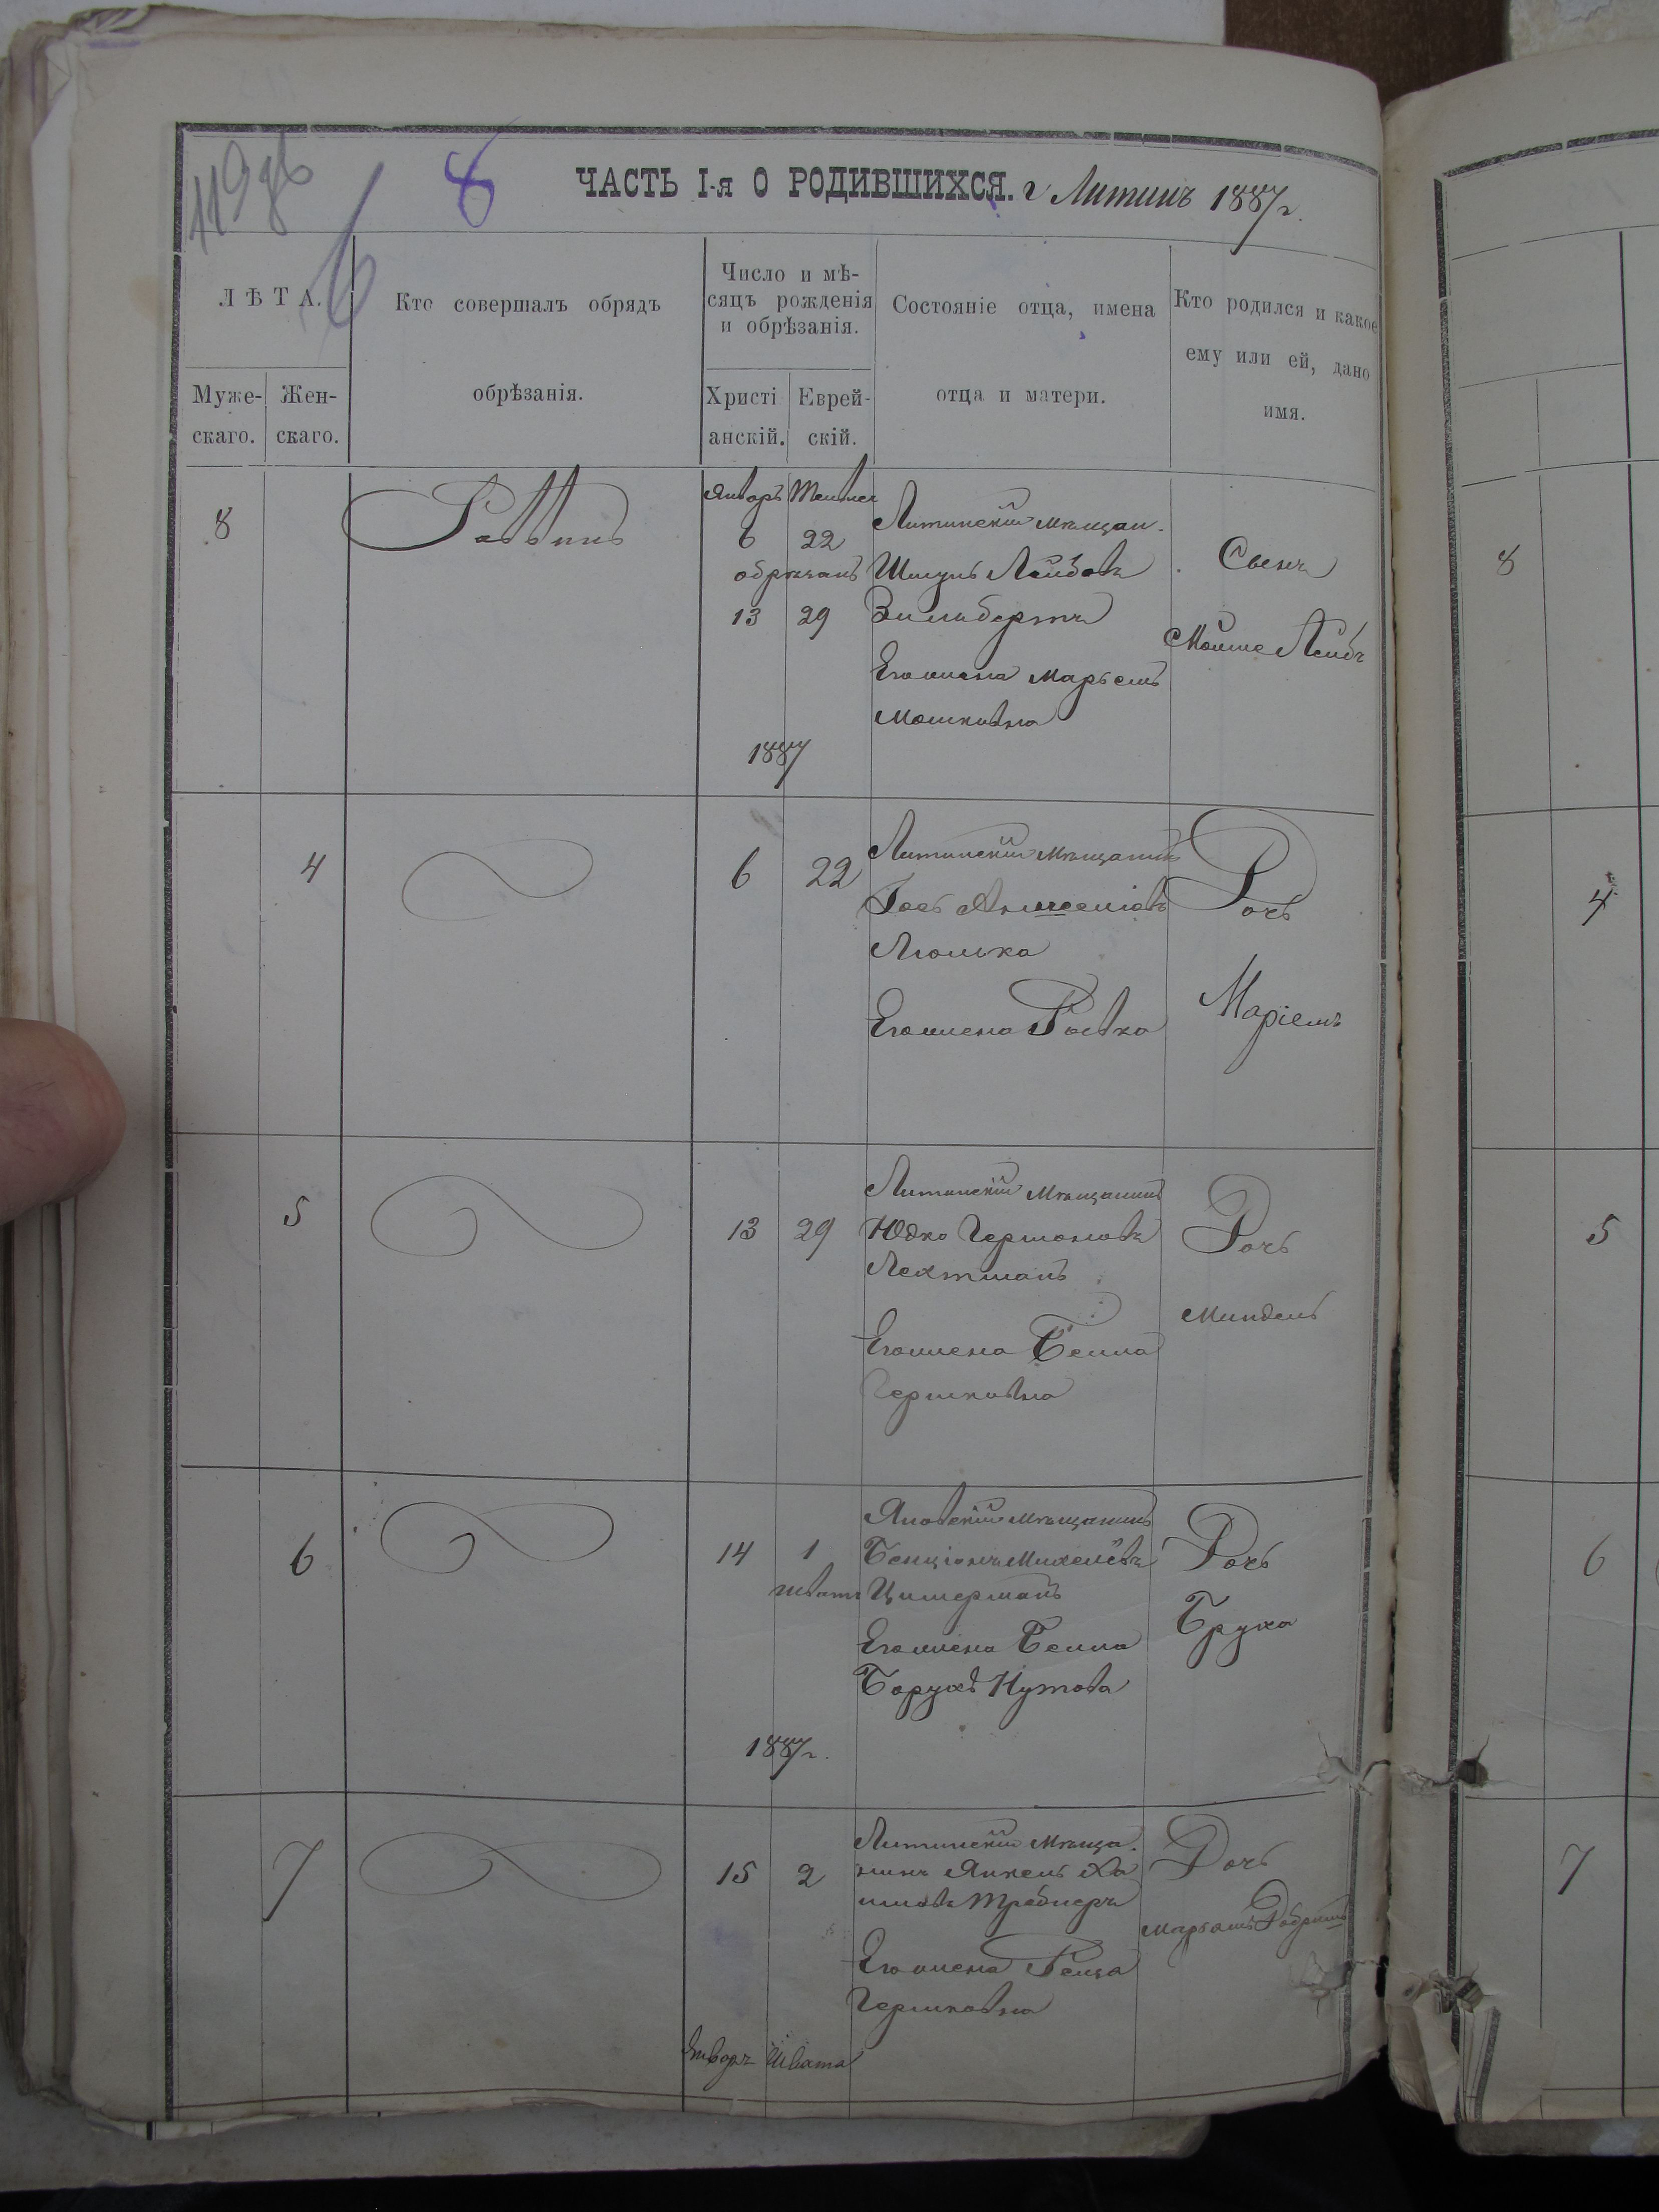 119 об
8
6
ЧАСТЬ I-я О РОДИВШИХСЯ. г Литинъ 1887 г.
ЛѢТА.
Муже-
скаго.
Жен-
скаго.
Кто совершалъ обрядъ
обрѣзанія.
Число и мѣ-
сяцъ рожденія
и обрѣзанія.
Христі
анскій.
Еврей-
скій.
Состояніе отца, имена
отца и матери.
Кто родился и какое
ему или ей, дано
имя.
8
Раввинъ
Январь
6
обрезанъ
13
22
29
1887
Литинскій мѣщан.
Шмуль Лейбовъ
Зильберъ
Его жена Марьемъ
Мошковна
Сынъ
Мойше Лейбъ
8
4
6
22
Литинскій мѣщанинъ
Люлька
Его жена Ривка
Дочь
Маріемъ
4
5
13
29
Литинскій мѣщанинъ
Юдко Гершоновъ
Лехтманъ
Его жена Бейла
Гершковна
Дочь
Миндель
5
6
14
1
швата
Яновскій мѣщанинъ
Бенціонъ Михелевъ
Цимерманъ
Его жена Бейла
Борухъ Нутова
1887 г.
Дочь
Бруха
6
7
15
2
Январь
Швата
Литинскій мѣща
нинъ Янкель Ха
имовъ Требнеръ
Его жена Рейза
Гершковна
Дочь
Марьямъ Добришъ
7